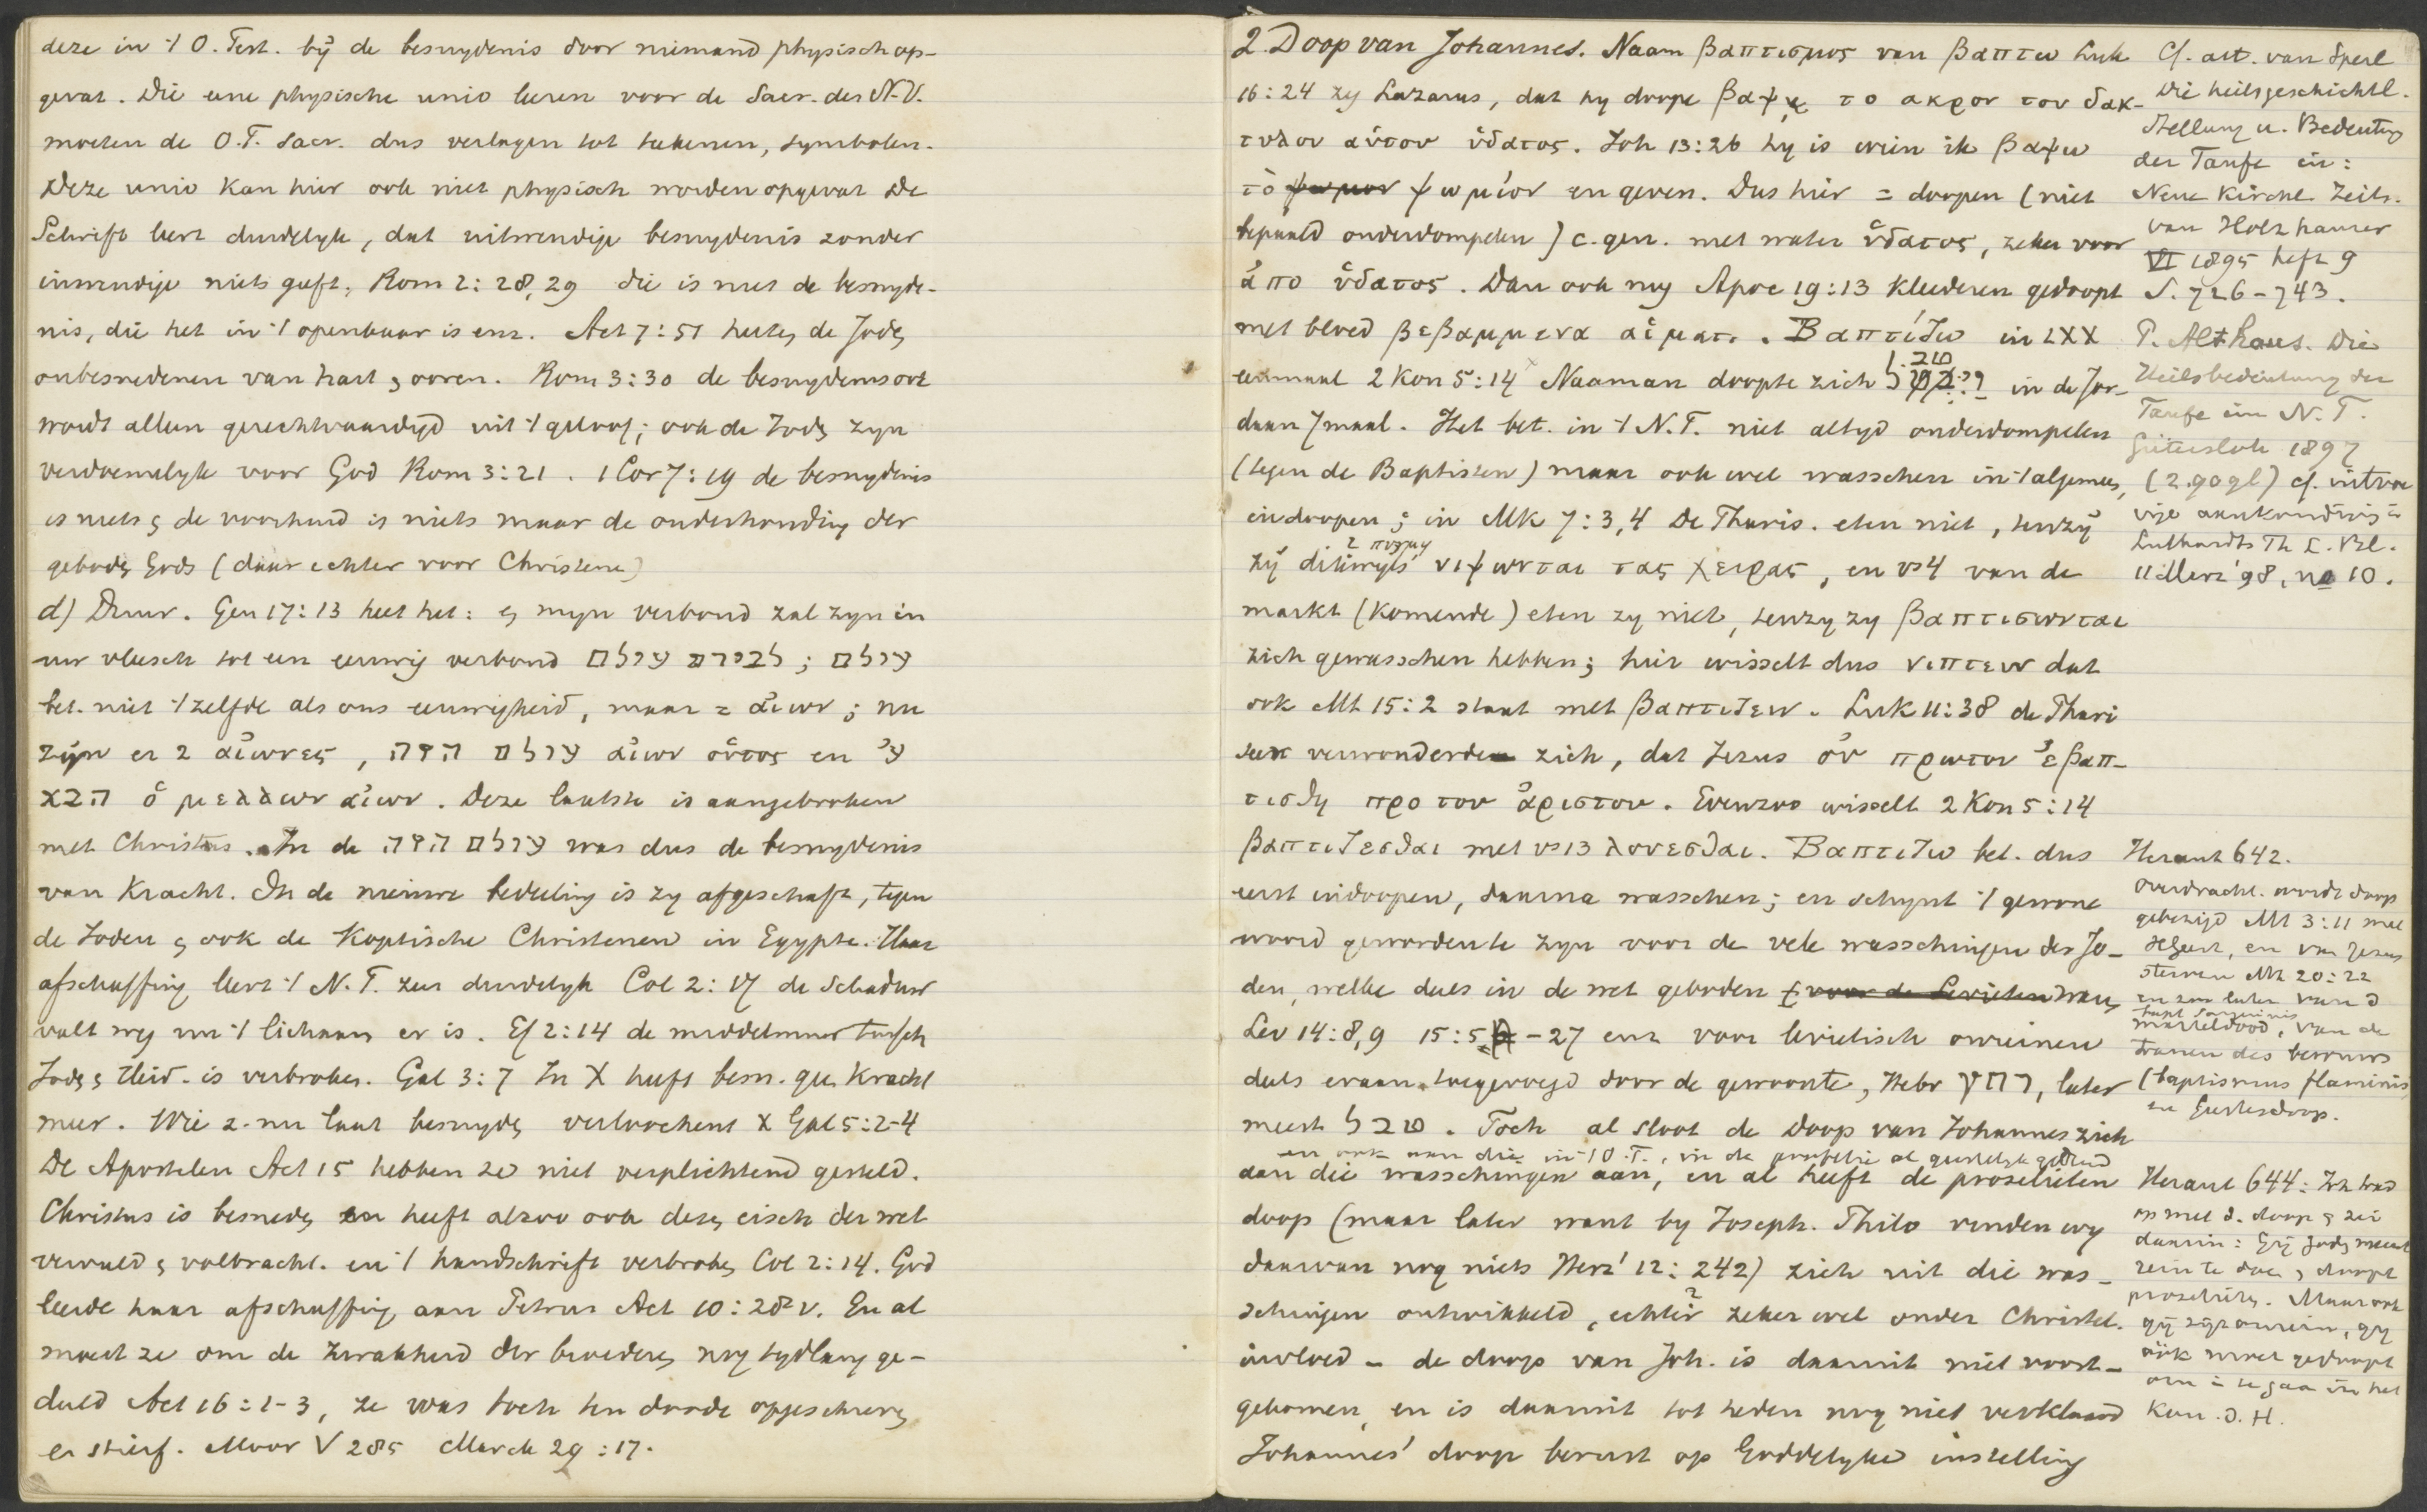 deze in 't O. Test. bij de besnydenis door niemand physisch op-
gevat. Die eene physische unio leeren voor de Sacr. des N.V.
moeten de O.T. sacr. dus verlagen tot teekenen, symbolen.
Deze unio kan hier ook niet physisch worden opgevat De
Schrift leert duidelyk, dat uitwendige besnydenis zonder
inwendige niets geeft, Rom 2:28,29 die is niet de besnyde-
nis, die het in 't openbaar is enz. Act 7:51 heeten de Joden
onbesnedenen van hart en ooren. Rom 3:30 de besnydenis ook
wordt alleen gerechtvaardigd uit 't geloof; ook de Joden zyn
verdoemelyk voor God Rom 3:21. 1 Cor 7:19 de besnydenis
is niets en de voorhuid is niets maar de onderhouding der
geboden Gods (daar echter voor Christenen)
d) Duur. Gen 17:13 heet het: en myn verbond zal zyn in
uw vleesch tot een eeuwig verbond לברית עולם; עולם
bet. niet 't zelfde als ons eeuwigheid, maar = αἰων; nu
zijn er 2 αἰωνες, עולם הזה αἰων οὑτος en ע'
הבא ὁ μελλων αἰων. Deze laatste is aangebroken
met Christus. In de עולם הזה was dus de besnydenis
van kracht. In de nieuwe bedeeling is zy afgeschaft, tegen
de Joden en ook de Koptische Christenen in Egypte. Haar
afschaffing leert 't N.T. zeer duidelyk Col 2:17 de schaduw
valt weg nu 't lichaam er is. Ef 2:14 de middelmuur tusschen
Joden en Heid. is verbroken. Gal 3:7 In X heeft besn. geen kracht
meer. Wie z. nu laat besnyden verloochent X Gal 5:2-4
De Apostelen Act 15 hebben ze niet verplichtend gesteld.
Christus is besneden en heeft alzoo ook dezen eisch der wet
vervuld en volbracht. en 't handschrift verbroken Col 2:14. God
leerde haar afschaffing aan Petrus Act 10:28 v. En al
moest ze om de zwakheid der broederen nog tydlang ge-
duld Act 16:1-3, ze was toch ten doode opgeschreven
en stierf. Moor V 285 Marck 29:17.
2. Doop van Johannes. Naam βαπτισμος van βαπτω Luk
16:24 zy Lazarus, dat hy doope βαψῃ το ακρον του δακ-
τυλου αὑτου ὑδατος. Joh 13:26 hy is wien ik βαψω
τὸ ψωμίον en geven. Dus hier = doopen (niet
bepaald onderdompelen) c. gen. met water ὑδατος, zeker voor
ἀπο ὑδατος. Dan ook nog Apoc 19:13 kleederen gedoopt
met bloed βεβαμμενα αἱματι. Βαπτίζω in LXX
eenmaal 2 Kon 5:14 Naaman doopte zich טבל in de Jor-
daan 7 maal. Het bet. in 't N.T. niet altyd onderdompelen
(tegen de Baptisten) maar ook wel wasschen in 't algemeen,
indoopen; in Mk 7:3,4 De Pharis. eten niet, tenzij
zij dikwyls πυγμῃ νιψωνται τας χειρας, en vs 4 van de
markt (komende) eten zy niet, tenzy zy βαπτισωνται
zich gewasschen hebben; hier wisselt dus νιπτειν dat
ook Mt 15:2 staat met βαπτιζειν. Luk 11:38 de Phari
seen verwonderden zich, dat Jezus οὐ πρωτον ἐβαπ-
τισθη προ του ἀριστου. Evenzoo wisselt 2 Kon 5:14
βαπτιζεσθαι met vs 13 λουεσθαι. Βαπτιζω bet. dus
eerst indoopen, daarna wasschen; en schynt 't gewone
woord geworden te zyn voor de vele wasschingen der Jo-
den, welke deels in de wet geboden (voor de Levieten) waren
Lev 14:8,9 15:5-27 enz voor levietisch onreinen
deels eraan toegevoegd door de gewoonte, Hebr רחץ, later
meest טבל. Toch al sloot de doop van Johannes zich
en ook aan die in 't O.T., in de profetie al geestelyk geduid
aan die wasschingen aan, en al heeft de proselieten
doop (maar later want by Joseph. Philo vinden wy
daarvan nog niets Herz² 12:242) zich uit die was-
schingen ontwikkeld, echter zeker wel onder Christel.
invloed - de doop van Joh. is daaruit niet voort-
gekomen, en is daaruit tot heden nog niet verklaard
Johannes' doop berust op Goddelyke instelling
Cf. art. van Sperl
Die heilsgeschichtl.
Stellung u. Bedeutung
der Taufe in:
Neue Kirchl. Zeits.
van Holzhauser
VI 1895 heft 9
S. 726-743.
P. Althaus. Die
Heilsbedeutung der
Taufe im N.T.
Gütersloh 1897
(2.90 gl) cf.
aankondiging in
Luthardts Th. L. Bl.
11 März '98, no 10.
Heraut 642.
Overdracht. wordt doop
gebezigd Mt 3:11 met
H Geest, en van Jezus
sterven Mt 20:22
en zoo later van d
bapt sanguinis
marteldood, van de
tranen des berouws
(baptismus flaminis
en Geestesdoop.
Heraut 644: Joh trad
op met d. doop en zei
daarin: Gij Joden meent
rein te zijn en doopt
proselieten. Maar ook
gij zijt onrein, gy
óók moet gedoopt
om in te gaan in het
Kon. d. H.